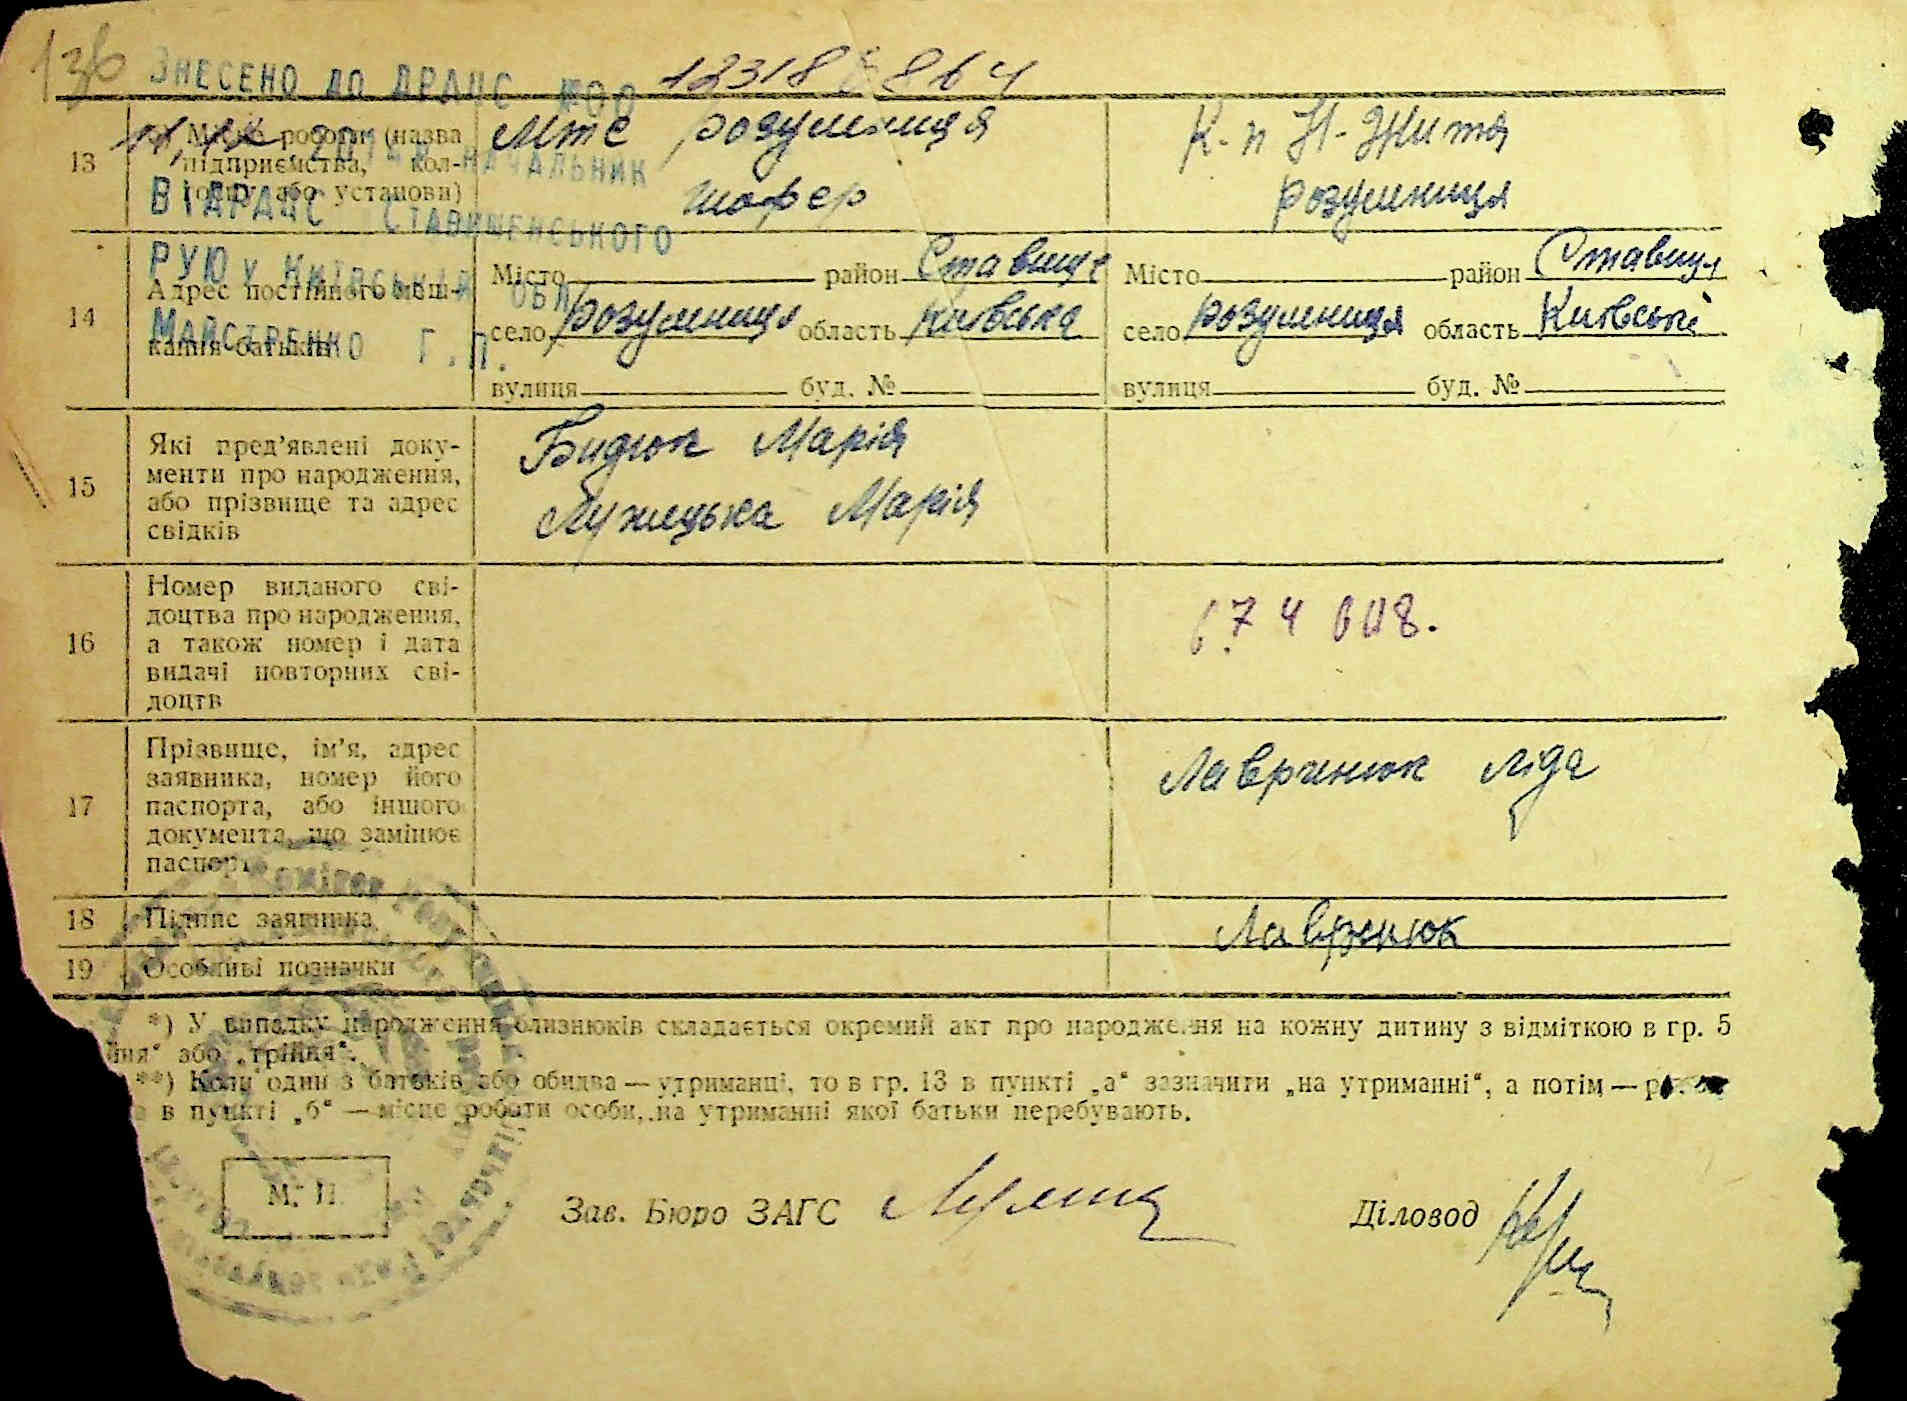 136 ЗНЕСЕНО ДО ДРАЦС №00 12318 864
13
Місце роботи (назва
підприємства, кол-
госпу або установи)
Мтс розумниця
шофер
К-п Н-Життя
розумниця
НАЧАЛЬНИК
ВІДРАЦС СТАВИЩЕНСЬКОГО
РУЮ У КИЇВСЬКІЙ ОБЛ
МАЙСТРЕНКО Г.П.
14
Адрес постійного меш-
кання батьків
Місто район Ставище
село розумниця область київська
вулиця буд. №
Місто район Ставищ
село розумниця область Київські
вулиця буд. №
15
Які пред'явлені доку-
менти про народження,
або прізвище та адрес
свідків
Бидюк Марія
Лужицька Марія
16
Номер виданого сві-
доцтва про народження,
а також номер і дата
видачі повторних сві-
доцтв
674 008.
17
Прізвище, ім'я, адрес
заявника, номер його
паспорта, або іншого
документа, що замінює
паспорт
Лавринюк Ліда
18
Підпис заявника
Лавренюк
19
Особливі позначки
*) У випадку народження близнюків складається окремий акт про народження на кожну дитину з відміткою в гр. 5
йня" або „трійня".
**) Коли один з батьків або обидва — утриманці, то в гр. 13 в пункті „а" зазначити „на утриманні", а потім —
в пункті „б" — місце роботи особи, на утриманні якої батьки перебувають.
М. П.
Зав. Бюро ЗАГС
Діловод